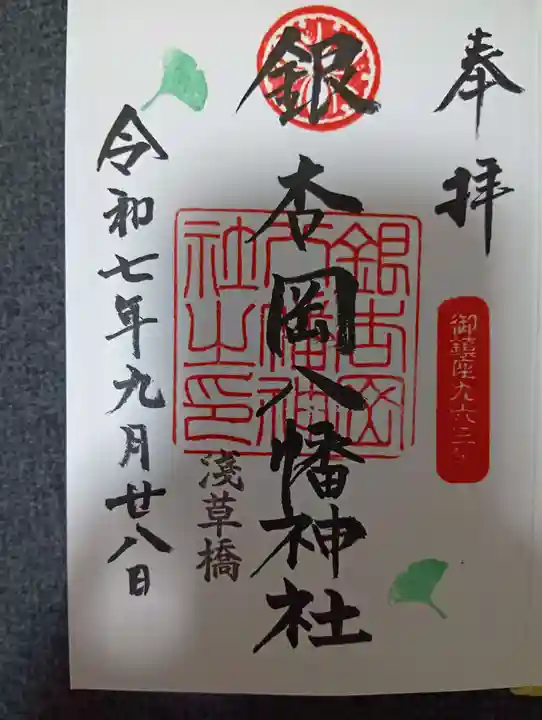 奉拝
御鎮座九六三年
銀杏岡八幡神社
銀杏岡八幡神社之印
浅草橋
令和七年九月廿八日